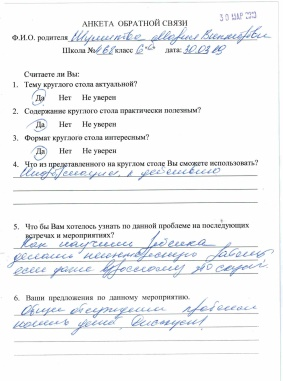 30 МАР 2009
АНКЕТА ОБРАТНОЙ СВЯЗИ
Ф.И.О. родителя Мария Викторовна
Школа № 468 класс 6 дата: 30.03.09
Считаете ли Вы:
1. Тему круглого стола актуальной?
Да Нет Не уверен
2. Содержание круглого стола практически полезным?
Да Нет Не уверен
3. Формат круглого стола интересным?
Да Нет Не уверен
4. Что из представленного на круглом столе Вы сможете использовать?
Информацию к действию
5. Что бы Вам хотелось узнать по данной проблеме на последующих
встречах и мероприятиях?
Как научить ребенка
делать неинтересную работу,
если даже взрослому это скучно.
6. Ваши предложения по данному мероприятию.
Общее обсуждение проблем